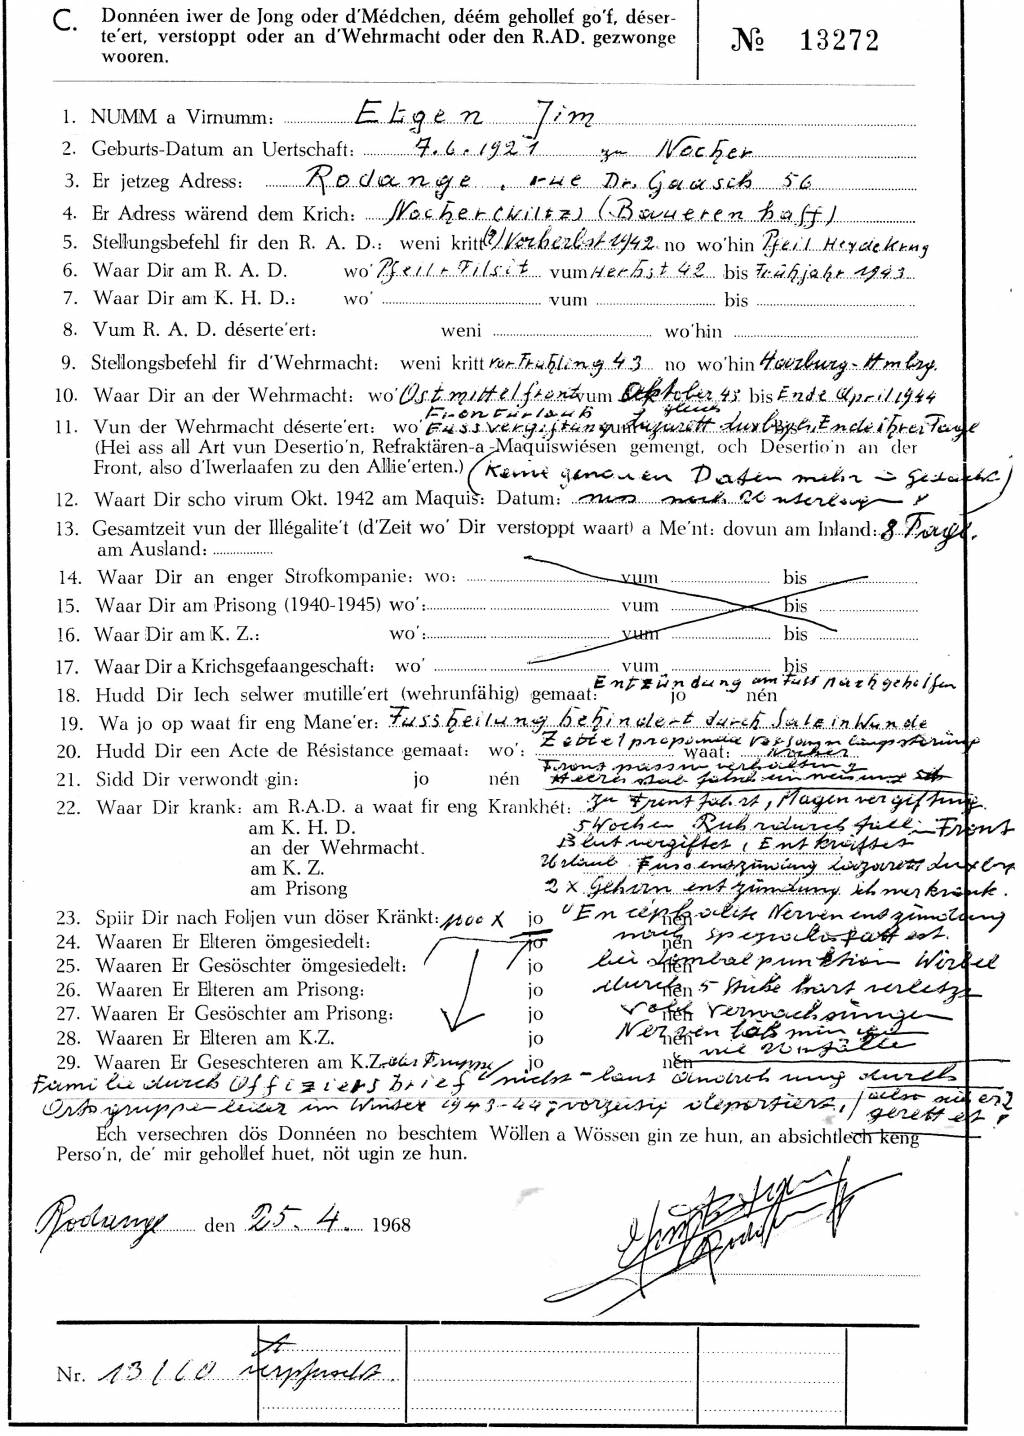 C. Donnéen iwer de Jong oder d'Médchen, déém gehollef go'f, déser-
te'ert, verstoppt oder an d'Wehrmacht oder den R.AD. gezwonge
wooren.
№ 13272
1. NUMM a Virnumm: Etgen Jim
2. Geburts-Datum an Uertschaft: 7.6.1921 zu Nocher
3. Er jetzeg Adress: Rodange, rue Dr. Gaasch 56
4. Er Adress wärend dem Krich: Nocher (Wiltz) (Baueren haff)
5. Stellungsbefehl fir den R. A. D.: weni kritt (?) Vorherbst 1942 no wo'hin Pfeil Heydekrug
6. Waar Dir am R. A. D. wo' Pfeil + Tilsit vum Herbst 42 bis Frühjahr 1943
7. Waar Dir am K. H. D.: wo' vum bis
8. Vum R. A. D. déserte'ert: weni wo'hin
9. Stellongsbefehl fir d'Wehrmacht: weni kritt vor Frühling 43 no wo'hin Harburg-Hmbrg.
10. Waar Dir an der Wehrmacht: wo' Ostmittelfront vum Oktober 43 bis Ende April 1944
Fronturlaub
11. Vun der Wehrmacht déserte'ert: wo' Fussvergiftung vum Lazarett bis Ende ihrer Tage
(Hei ass all Art vun Desertio'n, Refraktären-a-Maquiswiésen gemengt, och Desertio'n an der
Front, also d'Iwerlaafen zu den Allie'erten.) (Keine genauen Daten mehr
12. Waart Dir scho virum Okt. 1942 am Maquis: Datum: noch
13. Gesamtzeit vun der Illégalite't (d'Zeit wo' Dir verstoppt waart) a Me'nt: dovun am Inland: 8 Tage.
am Ausland:
14. Waar Dir an enger Strofkompanie: wo: vum bis
15. Waar Dir am Prisong (1940-1945) wo': vum bis
16. Waar Dir am K. Z.: wo': vum bis
17. Waar Dir a Krichsgefaangeschaft: wo' vum bis
Entzündung am Fuss nachgeholfen
18. Hudd Dir Iech selwer mutille'ert (wehrunfähig) gemaat: jo nén
19. Wa jo op waat fir eng Mane'er: Fussheilung behindert durch Salz in Wunde
Zettelpropaganda Versammlungsstörung
20. Hudd Dir een Acte de Résistance gemaat: wo': waat: Nocher
Front passiv verhalten
21. Sidd Dir verwondt gin: jo nén
22. Waar Dir krank: am R.A.D. a waat fir eng Krankhét: Zu Frontfahrt, Magenvergiftung
am K. H. D. 5 Wochen Ruhr durchfall in Front
an der Wehrmacht. Blutvergiftet, Entkräftet
am K. Z. Urlaub Fussentzündung Lazarett
am Prisong 2 x Gehirn entzündung
23. Spiir Dir nach Foljen vun döser Kränkt: 100% jo nén Nerven entzündung
24. Waaren Er Elteren ömgesiedelt: jo nén noch
25. Waaren Er Gesöschter ömgesiedelt: jo nén bei Lumbalpunktion Wirbel
26. Waaren Er Elteren am Prisong: jo nén durch 5 Stiche hart verletzt
27. Waaren Er Gesöschter am Prisong: jo nén Verwachsungen
28. Waaren Er Elteren am K.Z. jo nén Nerven
29. Waaren Er Geseschteren am K.Z. jo nén Unfälle
Familie durch Offiziersbrief nicht - laut Androhung durch
Ortsgruppenleiter im Winter 1943-44, vorzeitig deportiert,
gerettet!
Ech versechren dös Donnéen no beschtem Wöllen a Wössen gin ze hun, an absichtlech keng
Perso'n, de' mir gehollef huet, nöt ugin ze hun.
Rodange den 25. 4. 1968
Nr. 13160